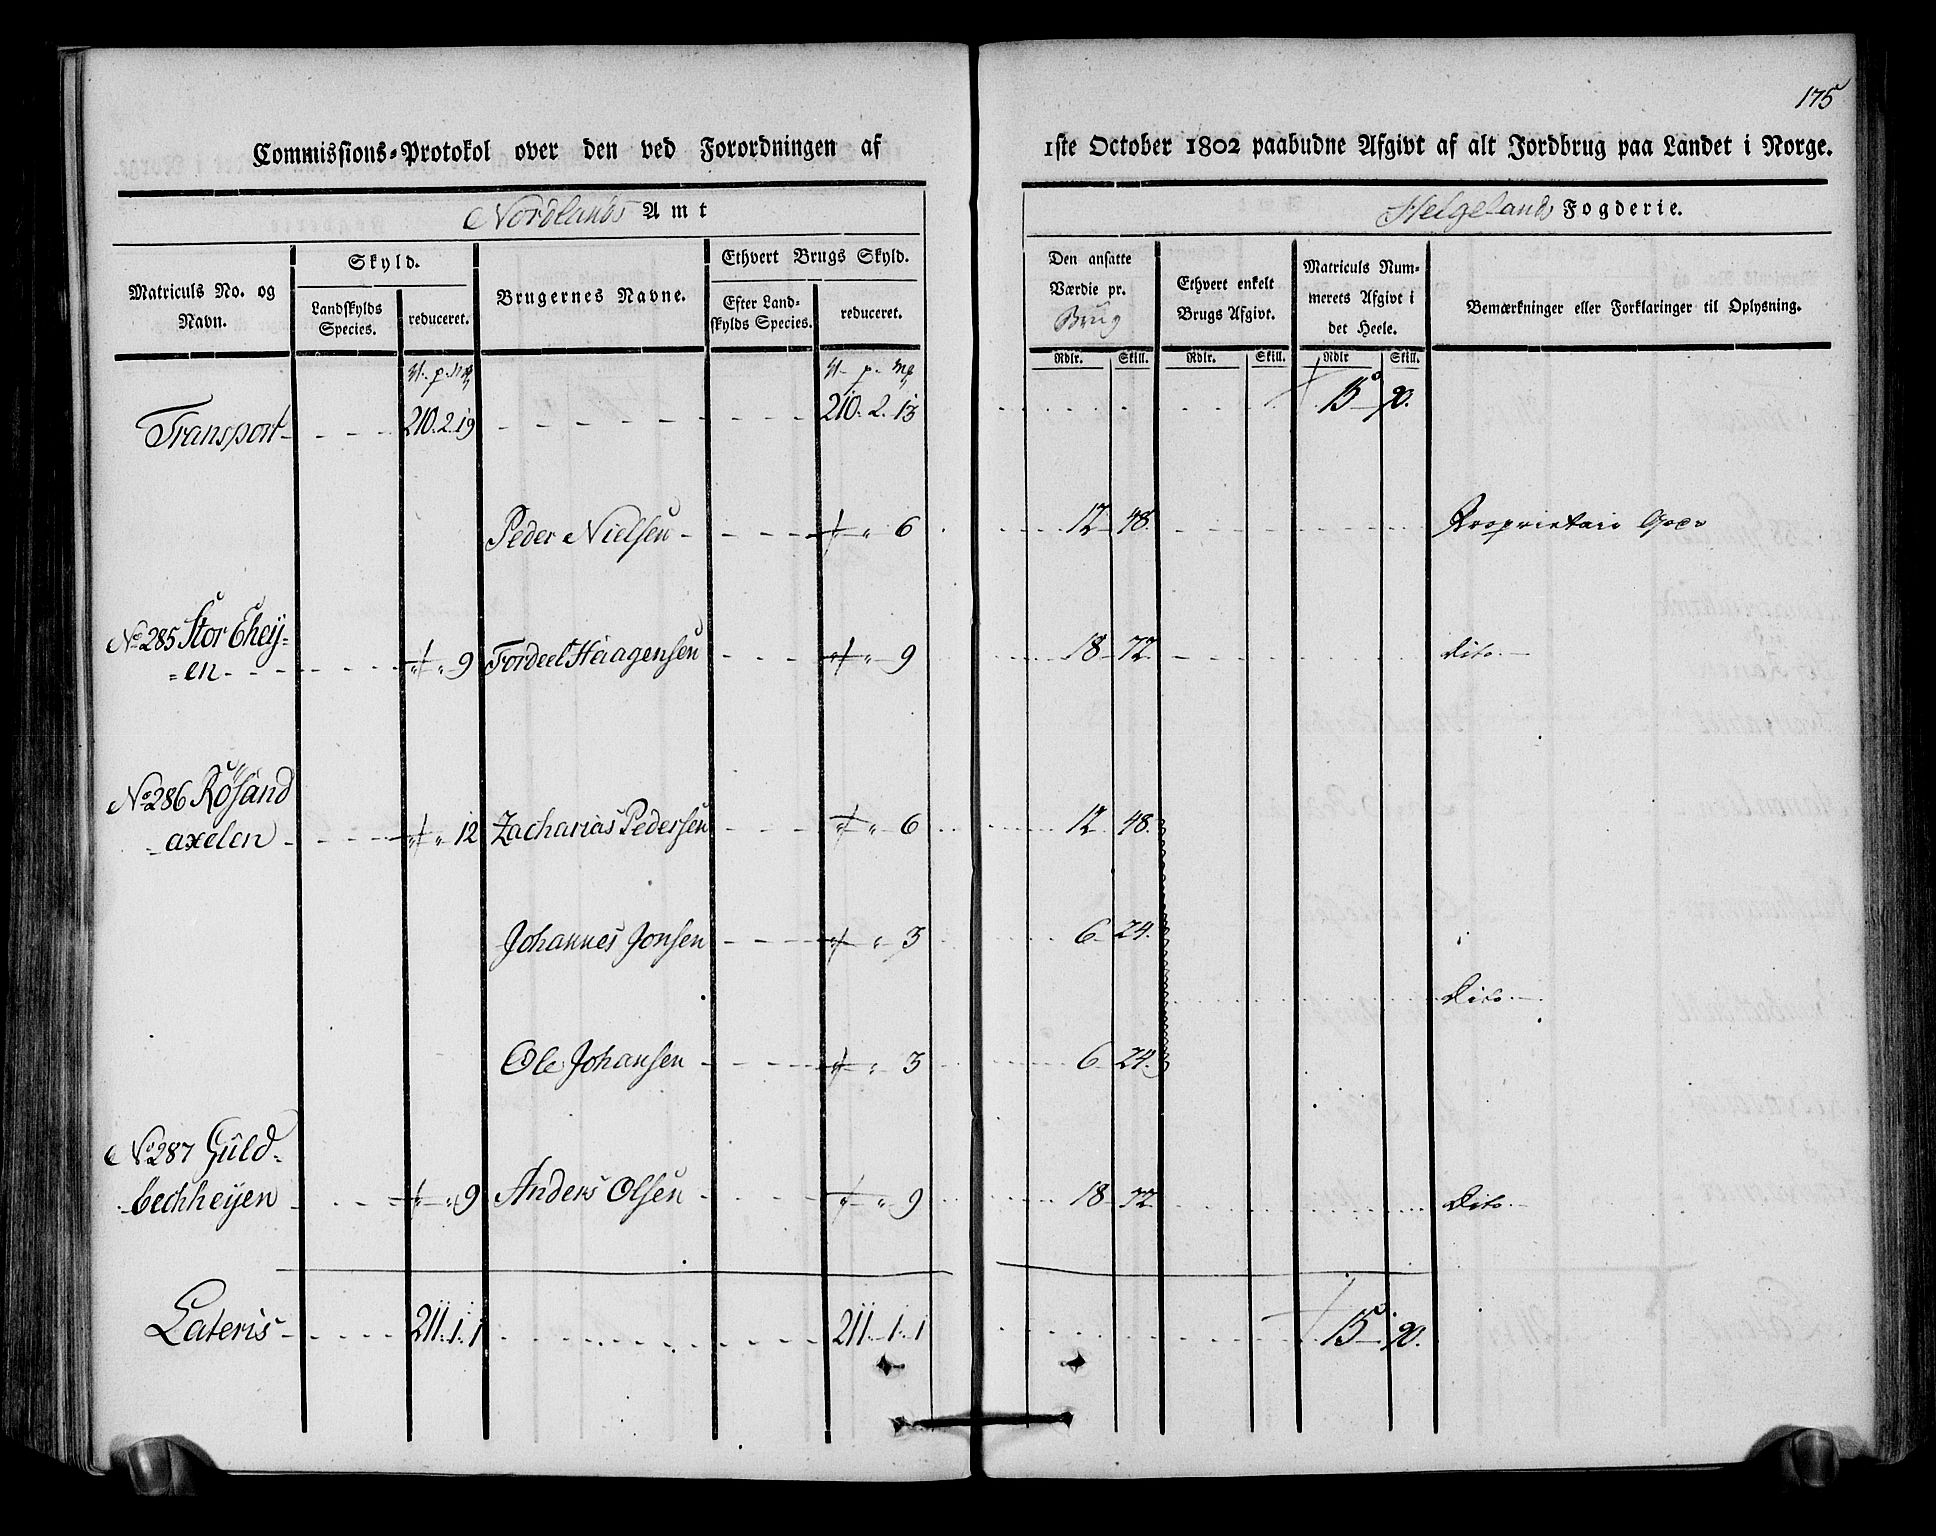 175
Commissions-Protokol over den ved Forordningen af 1ste October 1802 paabudne Afgivt af alt Jordbrug paa Landet i Norge.
Nordlands Amt
Helgelands Fogderie.
Matriculs No. og Navn.
Skyld.
Landskylds Species.
reduceret.
Brugernes Navne.
Ethvert Brugs Skyld.
Efter Landskylds Species.
reduceret.
Den ansatte Værdie pr. Brug
Ethvert enkelt Brugs Afgivt.
Matriculs Nummerets Afgivt i det Heele.
Bemærkninger eller Forklaringer til Oplysning.
Rdlr. Skill. Rdlr. Skill. Rdlr Skill.
Transport 210. 2. 19 210. 2. 13 15 90.
Peder Nielsen 6 12 48. Proprietair
No. 285 Stor Ehey=
=en 9 Tordeel Haagensen 9 18 72 Dito
No. 286 Rösand
axelen 12 Zacharias Pedersen 6 12 48.
Johannes Jonsen 3 6 24.
Dito
Ole Johansen 3 6 24.
No. 287 Guld=
bechheyen 9 Anders Olsen 9 18 72 Dito
Lateris 211. 1. 1 211. 1. 1 15 90.